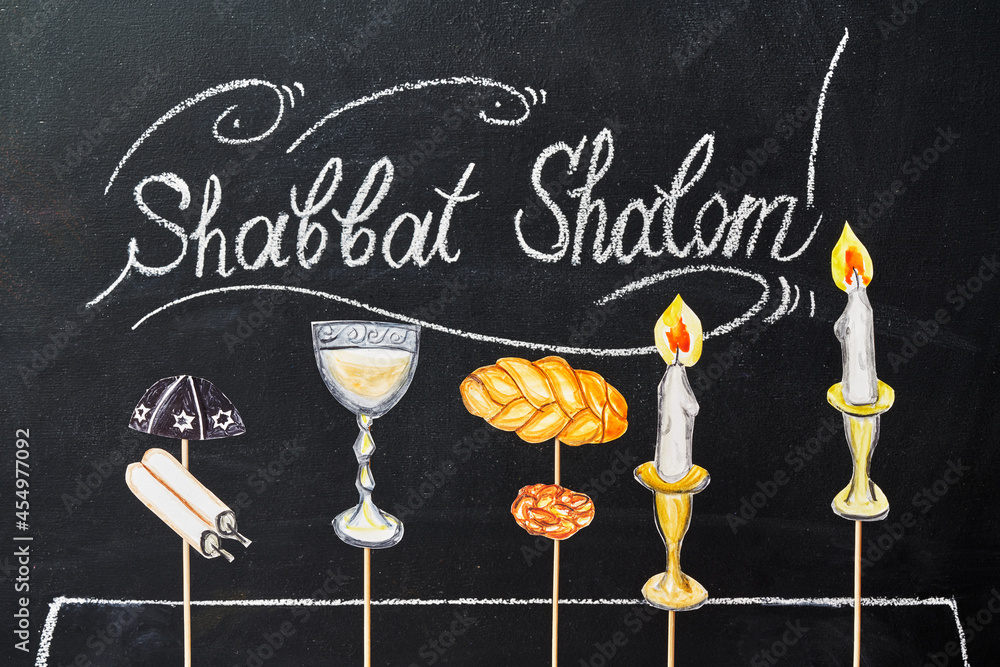 Shabbat Shalom!
Adobe Stock | #454977092